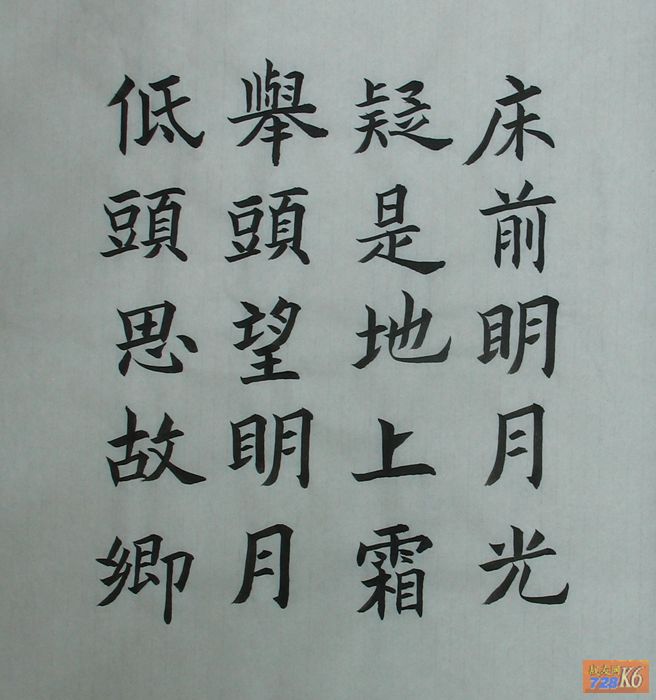 床前明月光
疑是地上霜
舉頭望明月
低頭思故鄉
728 K6